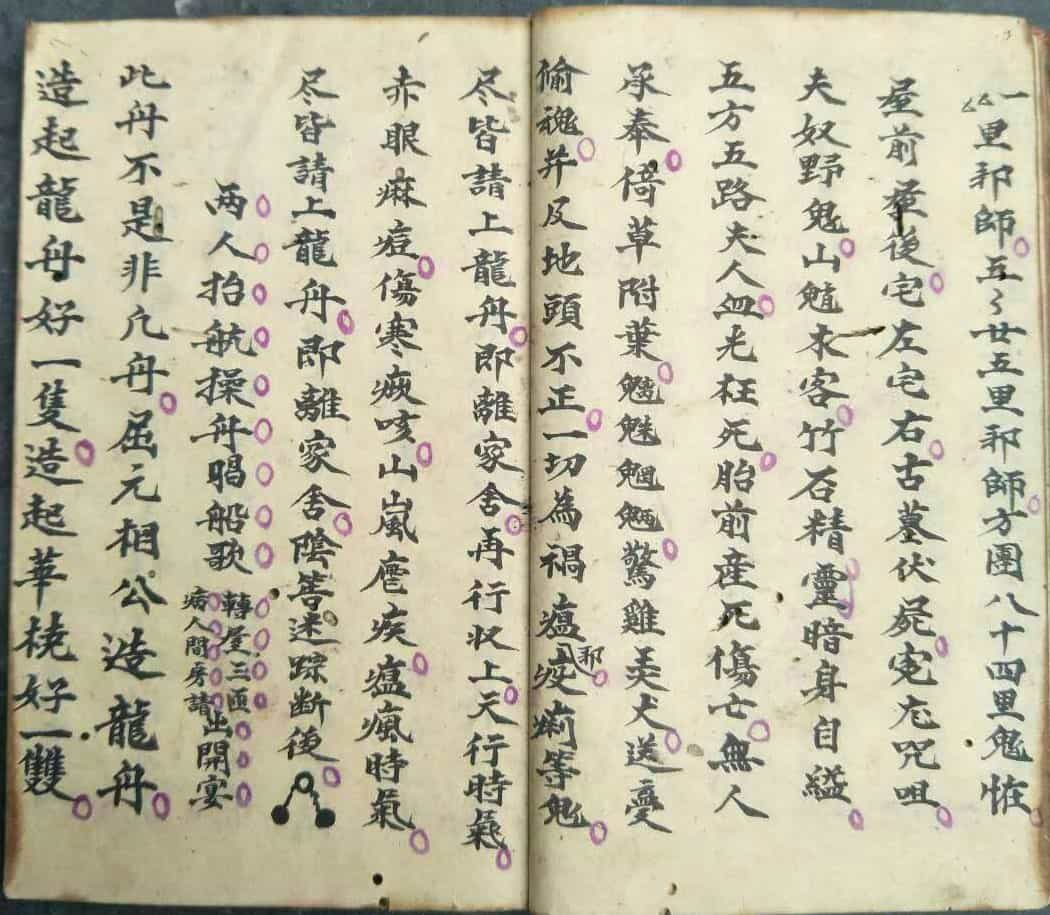 一里邪師五〻廿五里邪師方圍八十四里鬼恠
屋前屋後宅左宅右古墓伏屍寃尢咒咀
夫奴野鬼山魈木客竹石精靈暗身自縊
五方五路夫人血光枉死胎前産死傷亡無人
承奉倚草附葉魑魅魍魎驚雞美犬送憂
偷魂并及地頭不正一切為禍瘟邪疫痢等鬼
尽皆請上龍舟即離家舍再行收上天行時氣
赤眼麻痘傷寒痰咳山嵐瘧疾瘟瘋時氣
尽皆請上龍舟即離家舍陰筶迷踪断後
两人抬航操舟唱船歌 轉堂三匝 病人間房請 出開宴
此舟不是非凢舟屈元相公造龍舟
造起龍舟好一隻造起莘橈好一雙